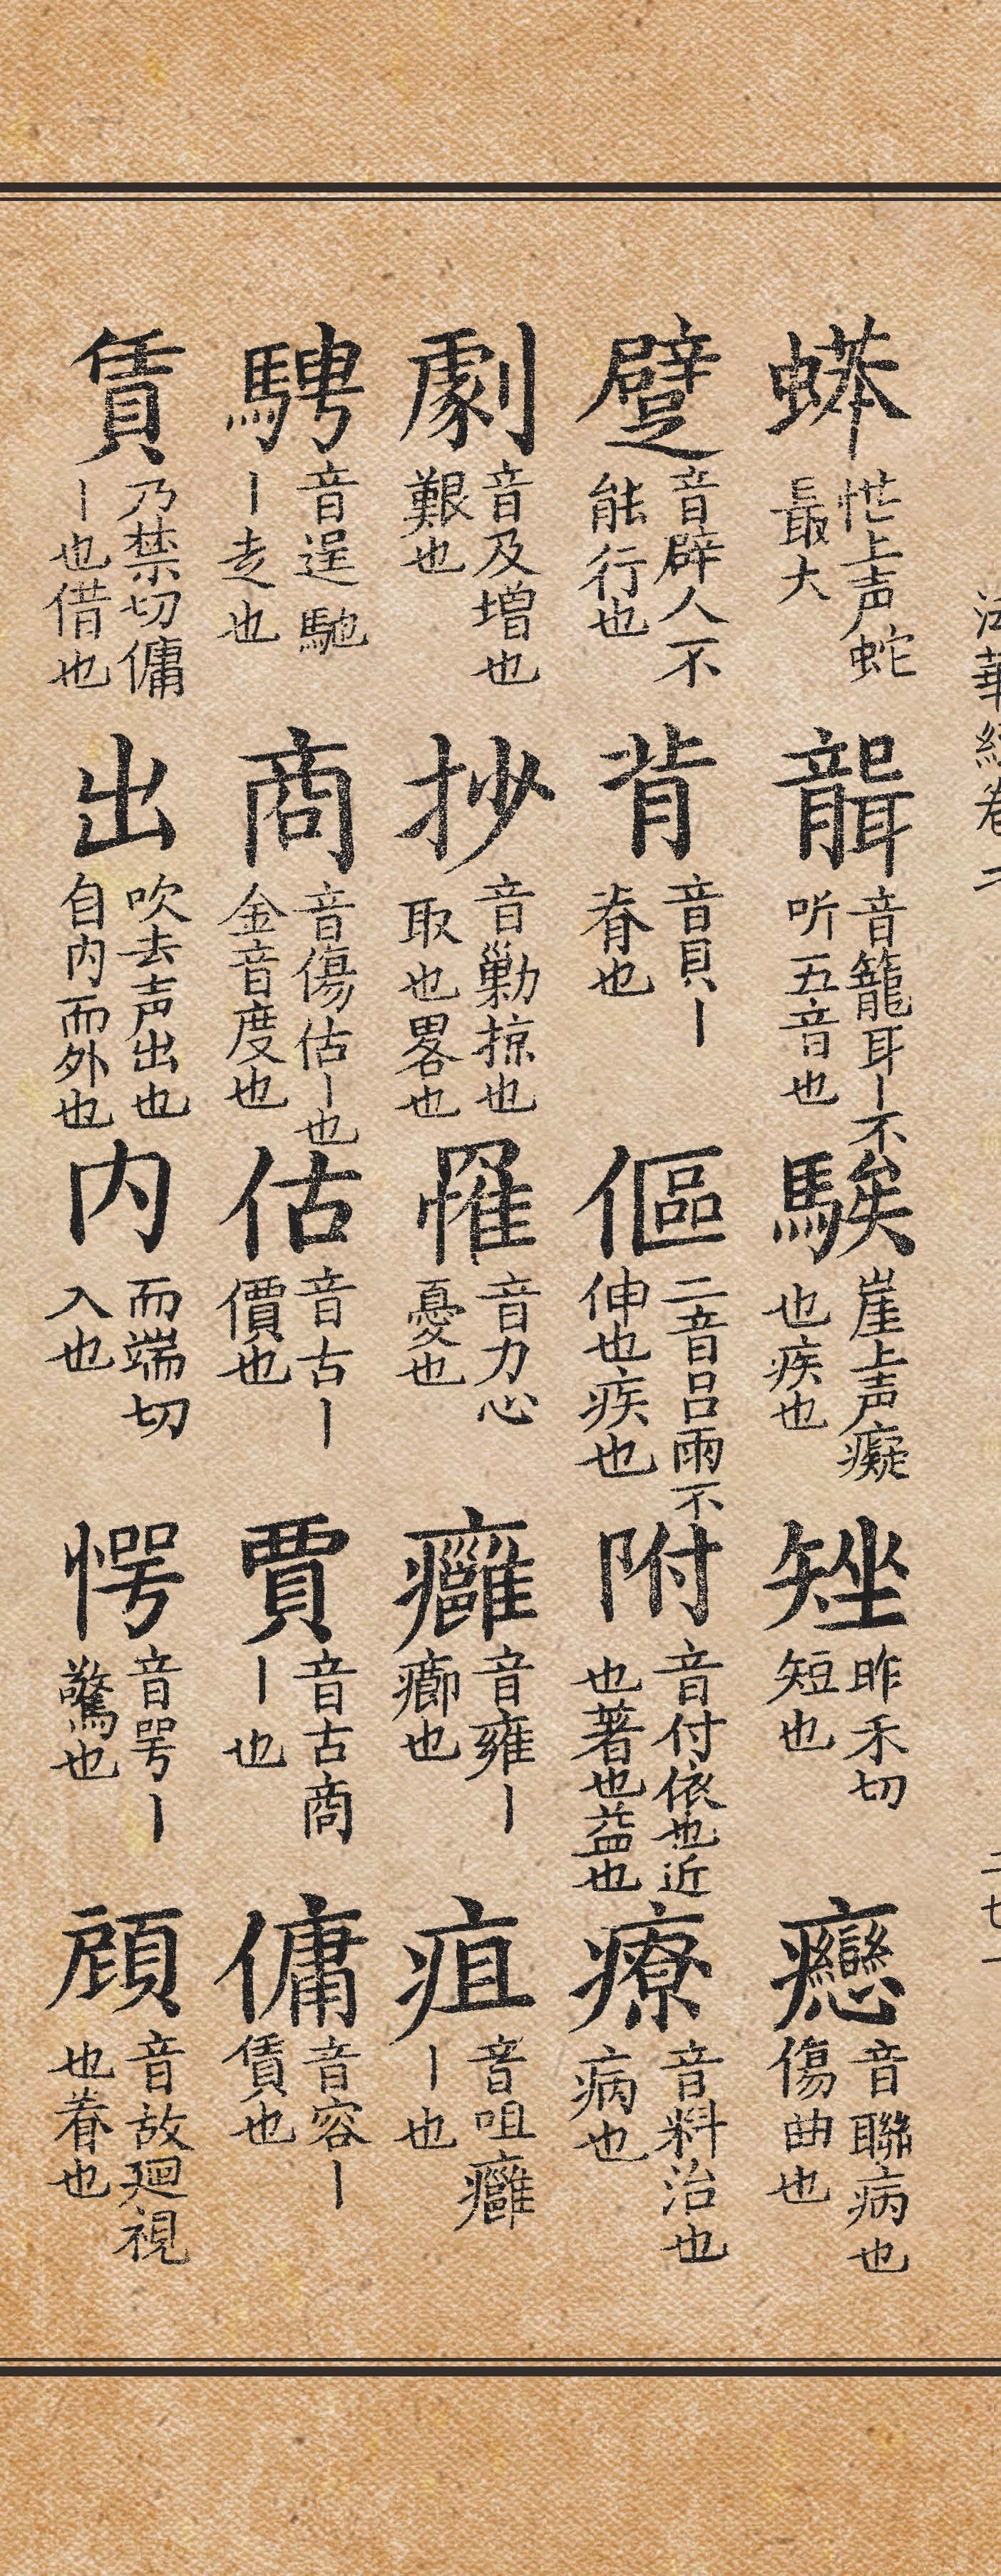 蟒 恾上声蛇最大 聾 音籠耳丨不听五音也 騃 崖上声癡也疾也 矬 昨禾切短也 癴 音聯病也傷曲也
躄 音辟人不能行也 背 音貝丨脊也 傴 二音吕雨不伸也疾也 附 音付依也近也著也益也 療 音料治也病也
劇 音及增也艱也 抄 音勦掠也取也畧也 罹 音力心憂也 癰 音雍丨癤也 疽 音咀癰丨也
騁 音逞馳丨走也 商 音傷估丨也金音度也 估 音古丨價也 賈 音古商丨也 傭 音容丨賃也
賃 乃禁切傭丨也借也 出 吹去声出也自内而外也 内 而端切入也 愕 音咢丨驚也 顧 音故廻視也眷也